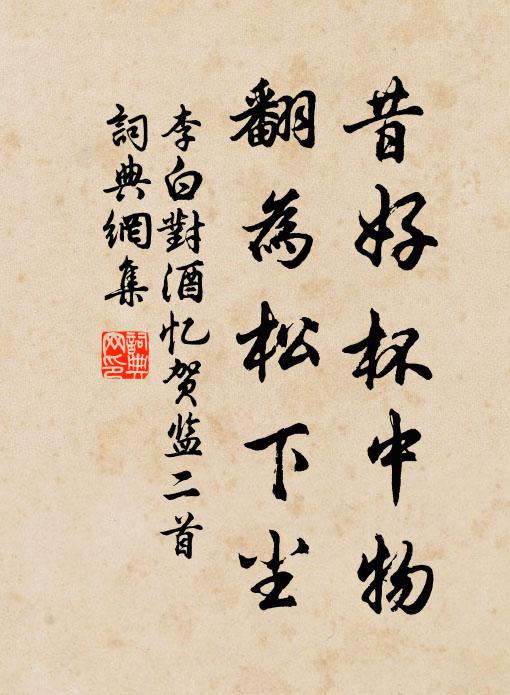 昔好杯中物
翻為松下尘
李白對酒忆贺监二首
詞典網集
詞典网印